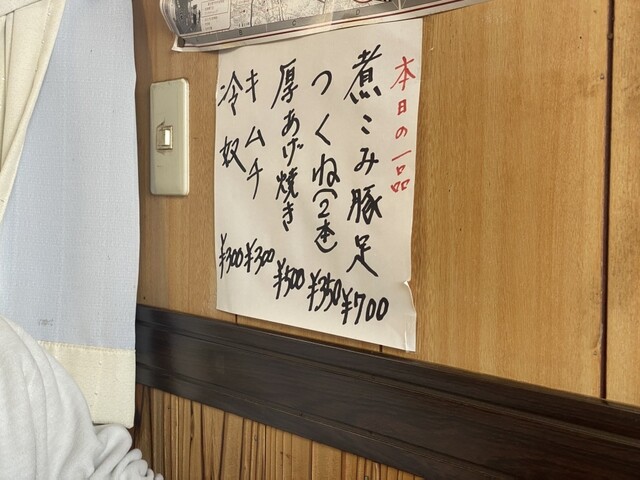 本日の一品
煮こみ豚足 ¥700
つくね(2本) ¥350
厚あげ焼き ¥500
キムチ ¥300
冷奴 ¥300